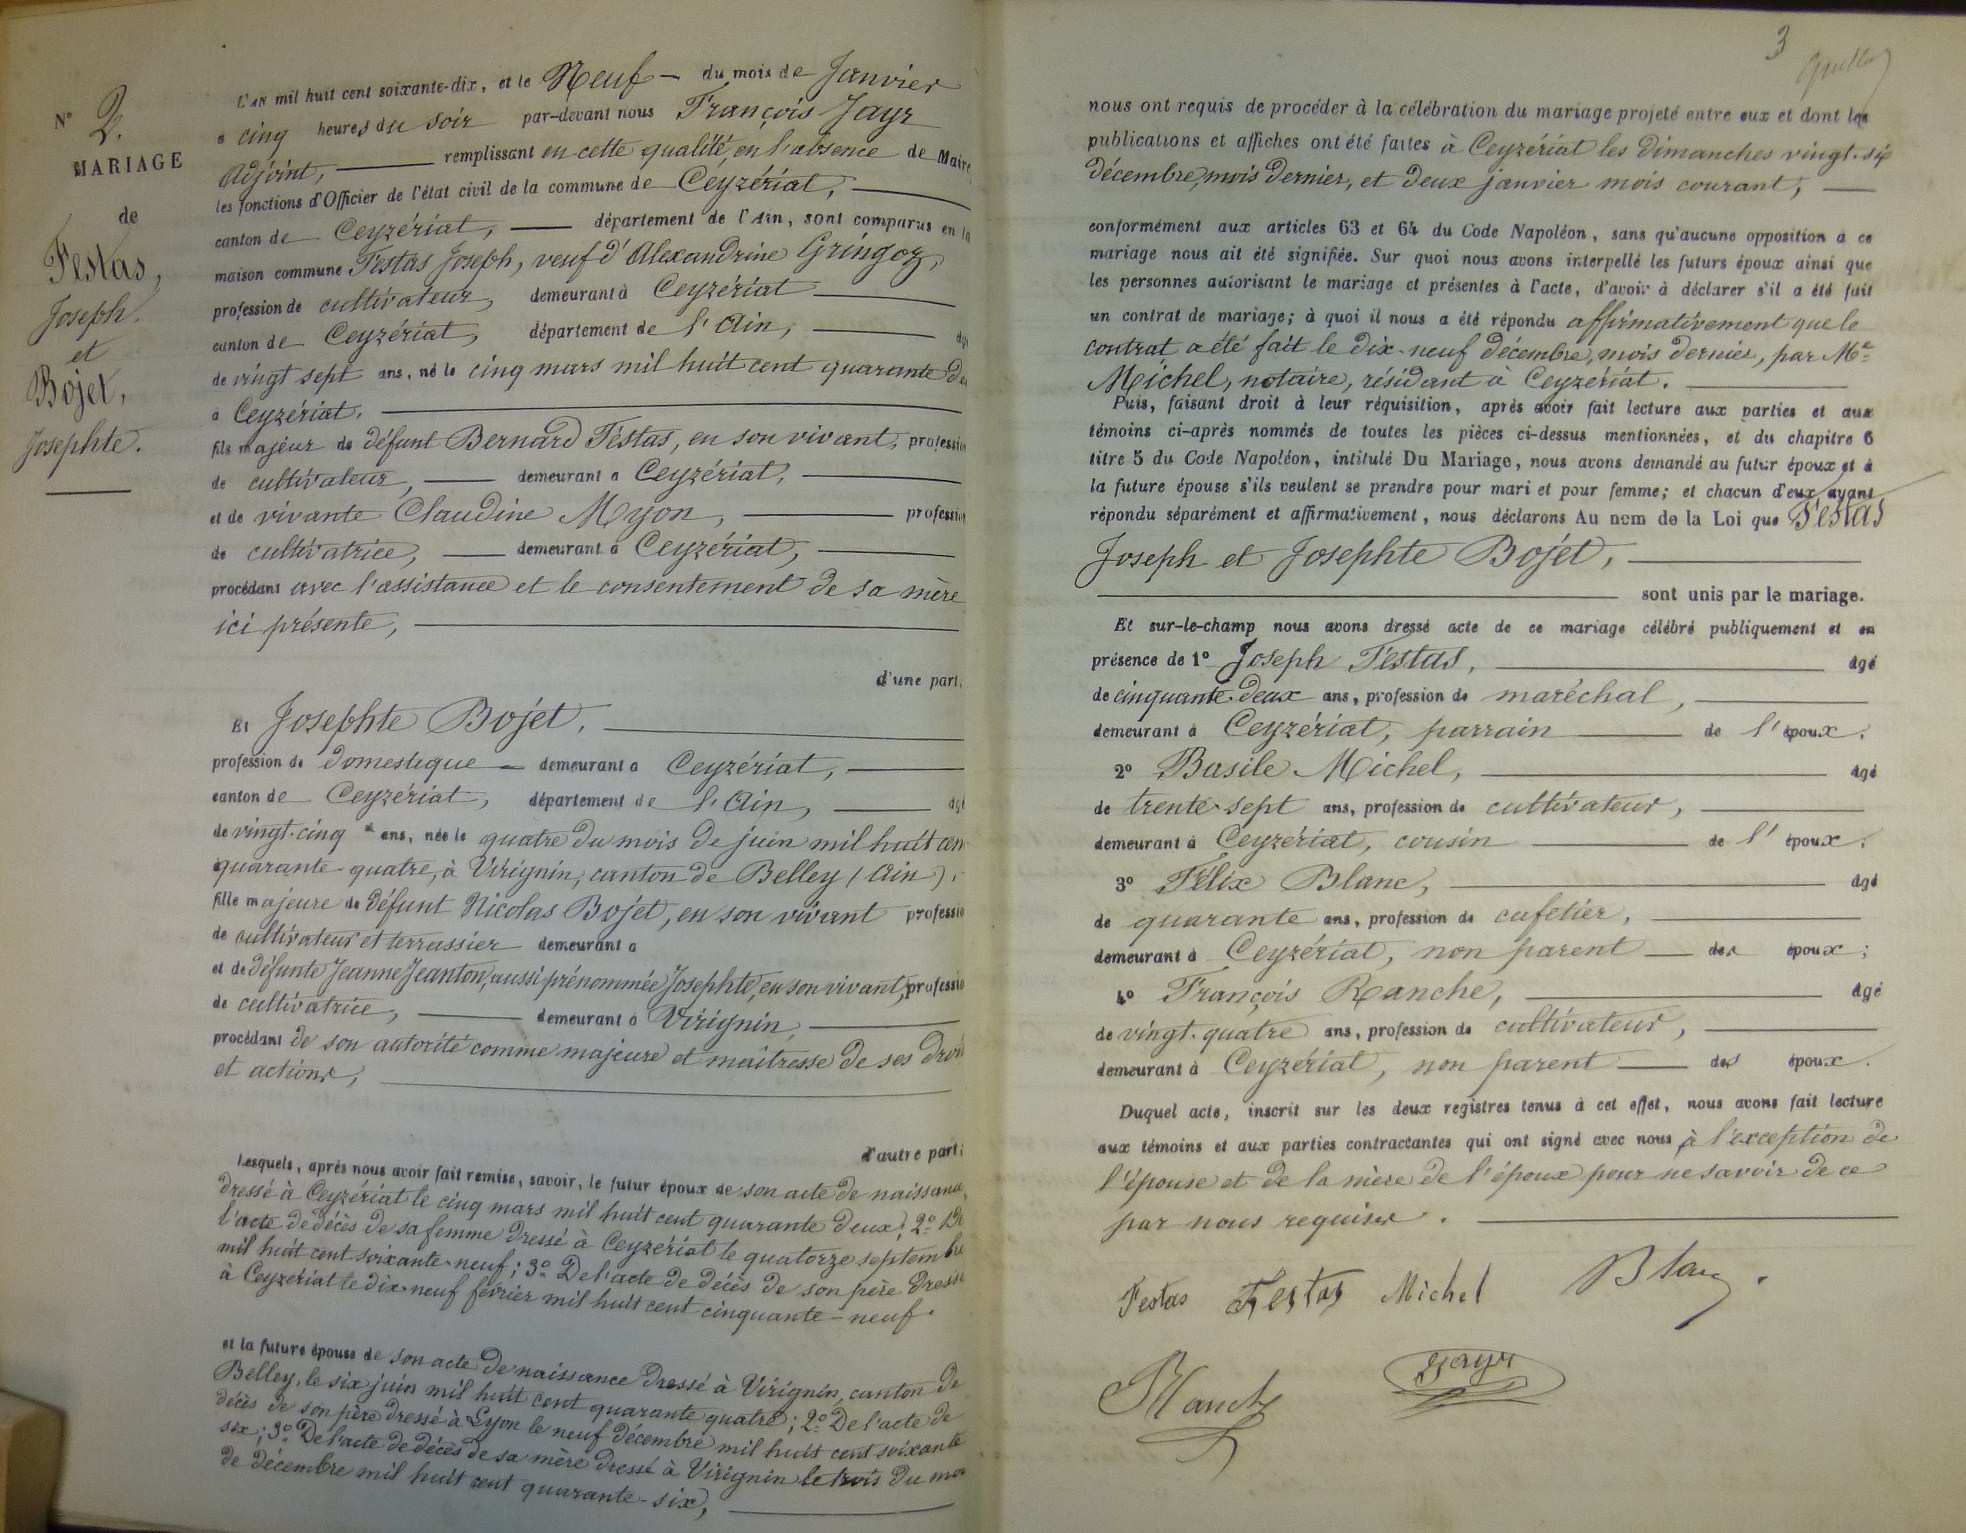 N° 2.
MARIAGE
de
Festas,
Joseph.
et
Bojet,
Josephte.
L'an mil huit cent soixante-dix, et le Neuf — du mois de Janvier
a cinq heures du soir par-devant nous François Jayr
Adjoint, remplissant en cette qualité, en l'absence de Maire,
les fonctions d'Officier de l'état civil de la commune de Ceyzériat,
canton de Ceyzériat, département de l'Ain, sont comparus en la
maison commune Festas Joseph, veuf d'Alexandrine Gringoz,
profession de cultivateur, demeurant à Ceyzériat
canton de Ceyzériat, département de l'Ain, âgé
de vingt sept ans, né le cinq mars mil huit cent quarante deux
a Ceyzériat.
fils majeur de défunt Bernard Festas, en son vivant, profession
de cultivateur, demeurant a Ceyzériat,
et de vivante Claudine Myon, profession
de cultivatrice, demeurant à Ceyzériat,
procédant avec l'assistance et le consentement de sa mère
ici présente,
d'une part.
Et Josephte Bojet,
profession de domestique — demeurant a Ceyzériat,
canton de Ceyzériat, département de l'Ain, âgé
de vingt-cinq ans, née le quatre du mois de juin mil huit cen
quarante-quatre, à Virignin, canton de Belley (Ain).
fille majeure de défunt Nicolas Bojet, en son vivant professio
de cultivateur et terrassier demeurant a
et de défunte Jeanne Jeanton, aussi prénommée Josephte, en son vivant, professio
de cultivatrice, demeurant à Virignin,
procédant de son autorité comme majeure et maîtresse de ses droit
et actions,
d'autre part;
Lesquels, après nous avoir fait remise, savoir, le futur époux de son acte de naissance,
dressé à Ceyzériat le cinq mars mil huit cent quarante deux; 2° De
l'acte de décès de sa femme dressé à Ceyzériat le quatorze septembre
mil huit cent soixante-neuf; 3° De l'acte de décès de son père dressé
à Ceyzériat le dix-neuf février mil huit cent cinquante-neuf.
et la future épouse de son acte de naissance dressé à Virignin, canton de
Belley, le six juin mil huit cent quarante quatre; 2° De l'acte de
décès de son père dressé à Lyon le neuf décembre mil huit cent soixante
six; 3° De l'acte de décès de sa mère dressé à Virignin le trois du moi
de décembre mil huit cent quarante-six,
3
nous ont requis de procéder à la célébration du mariage projeté entre eux et dont les
publications et affiches ont été faites à Ceyzériat les dimanches vingt-six
décembre, mois dernier, et deux janvier mois courant,
conformément aux articles 63 et 64 du Code Napoléon, sans qu'aucune opposition a ce
mariage nous ait été signifiée. Sur quoi nous avons interpellé les futurs époux ainsi que
les personnes autorisant le mariage et présentes à l'acte, d'avoir à déclarer s'il a été fait
un contrat de mariage; à quoi il nous a été répondu affirmativement que le
contrat a été fait le dix-neuf décembre, mois dernier, par Me
Michel, notaire, résidant à Ceyzériat.
Puis, faisant droit à leur réquisition, après avoir fait lecture aux parties et aux
témoins ci-après nommés de toutes les pièces ci-dessus mentionnées, et du chapitre 6
titre 5 du Code Napoléon, intitulé Du Mariage, nous avons demandé au futur époux et à
la future épouse s'ils veulent se prendre pour mari et pour femme; et chacun d'eux ayant
répondu séparément et affirmativement, nous déclarons Au nom de la Loi que Festas
Joseph et Josephte Bojet,
sont unis par le mariage.
Et sur-le-champ nous avons dressé acte de ce mariage célébré publiquement et en
présence de 1° Joseph Festas, âgé
de cinquante-deux ans, profession de maréchal,
demeurant à Ceyzériat, parrain de l'époux.
2° Basile Michel, âgé
de trente-sept ans, profession de cultivateur,
demeurant à Ceyzériat, cousin de l'époux.
3° Félix Blanc, âgé
de quarante ans, profession de cafetier,
demeurant à Ceyzériat, non parent des époux;
4° François Ranche, âgé
de vingt-quatre ans, profession de cultivateur,
demeurant à Ceyzériat, non parent des époux.
Duquel acte, inscrit sur les deux registres tenus à cet effet, nous avons fait lecture
aux témoins et aux parties contractantes qui ont signé avec nous à l'exception de
l'épouse et de la mère de l'époux pour ne savoir de ce
par nous requises.
Festas Festas Michel Blanc.
Ranche Jayr